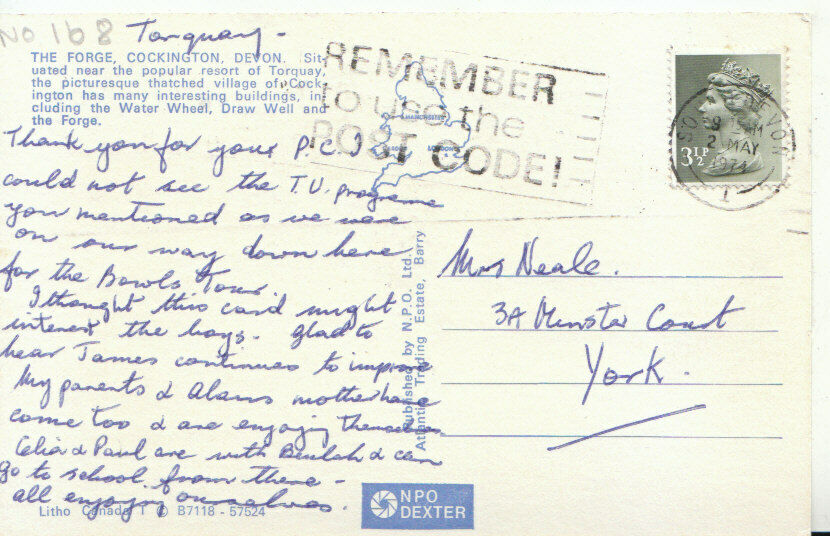 No 168
Torquay -
THE FORGE, COCKINGTON, DEVON. Sit-
uated near the popular resort of Torquay,
the picturesque thatched village of Cock
ington has many interesting buildings, in
cluding the Water Wheel, Draw Well and
the Forge.
Thank you for your P.C. I
could not see the T.V. programe
you mentioned as we were
on our way down here
for the Bowls Tour.
I thought this card might
interest the boys. Glad to
hear James continues to improve
My parents & Alans mother have
come too & are enjoying themselves
Celia & Paul are with Beulah & can
go to school from there -
all enjoying ourselves.
Litho Canada T © B7118 - 57524
REMEMBER
to use the
POST CODE!
MANCHESTER
LONDON
Published by N.P.O. Ltd.
Atlantic Trading Estate, Barry
NPO
DEXTER
3½
DEVON
2 MAY
1974
Mrs Neale.
3A Minster Court
York.